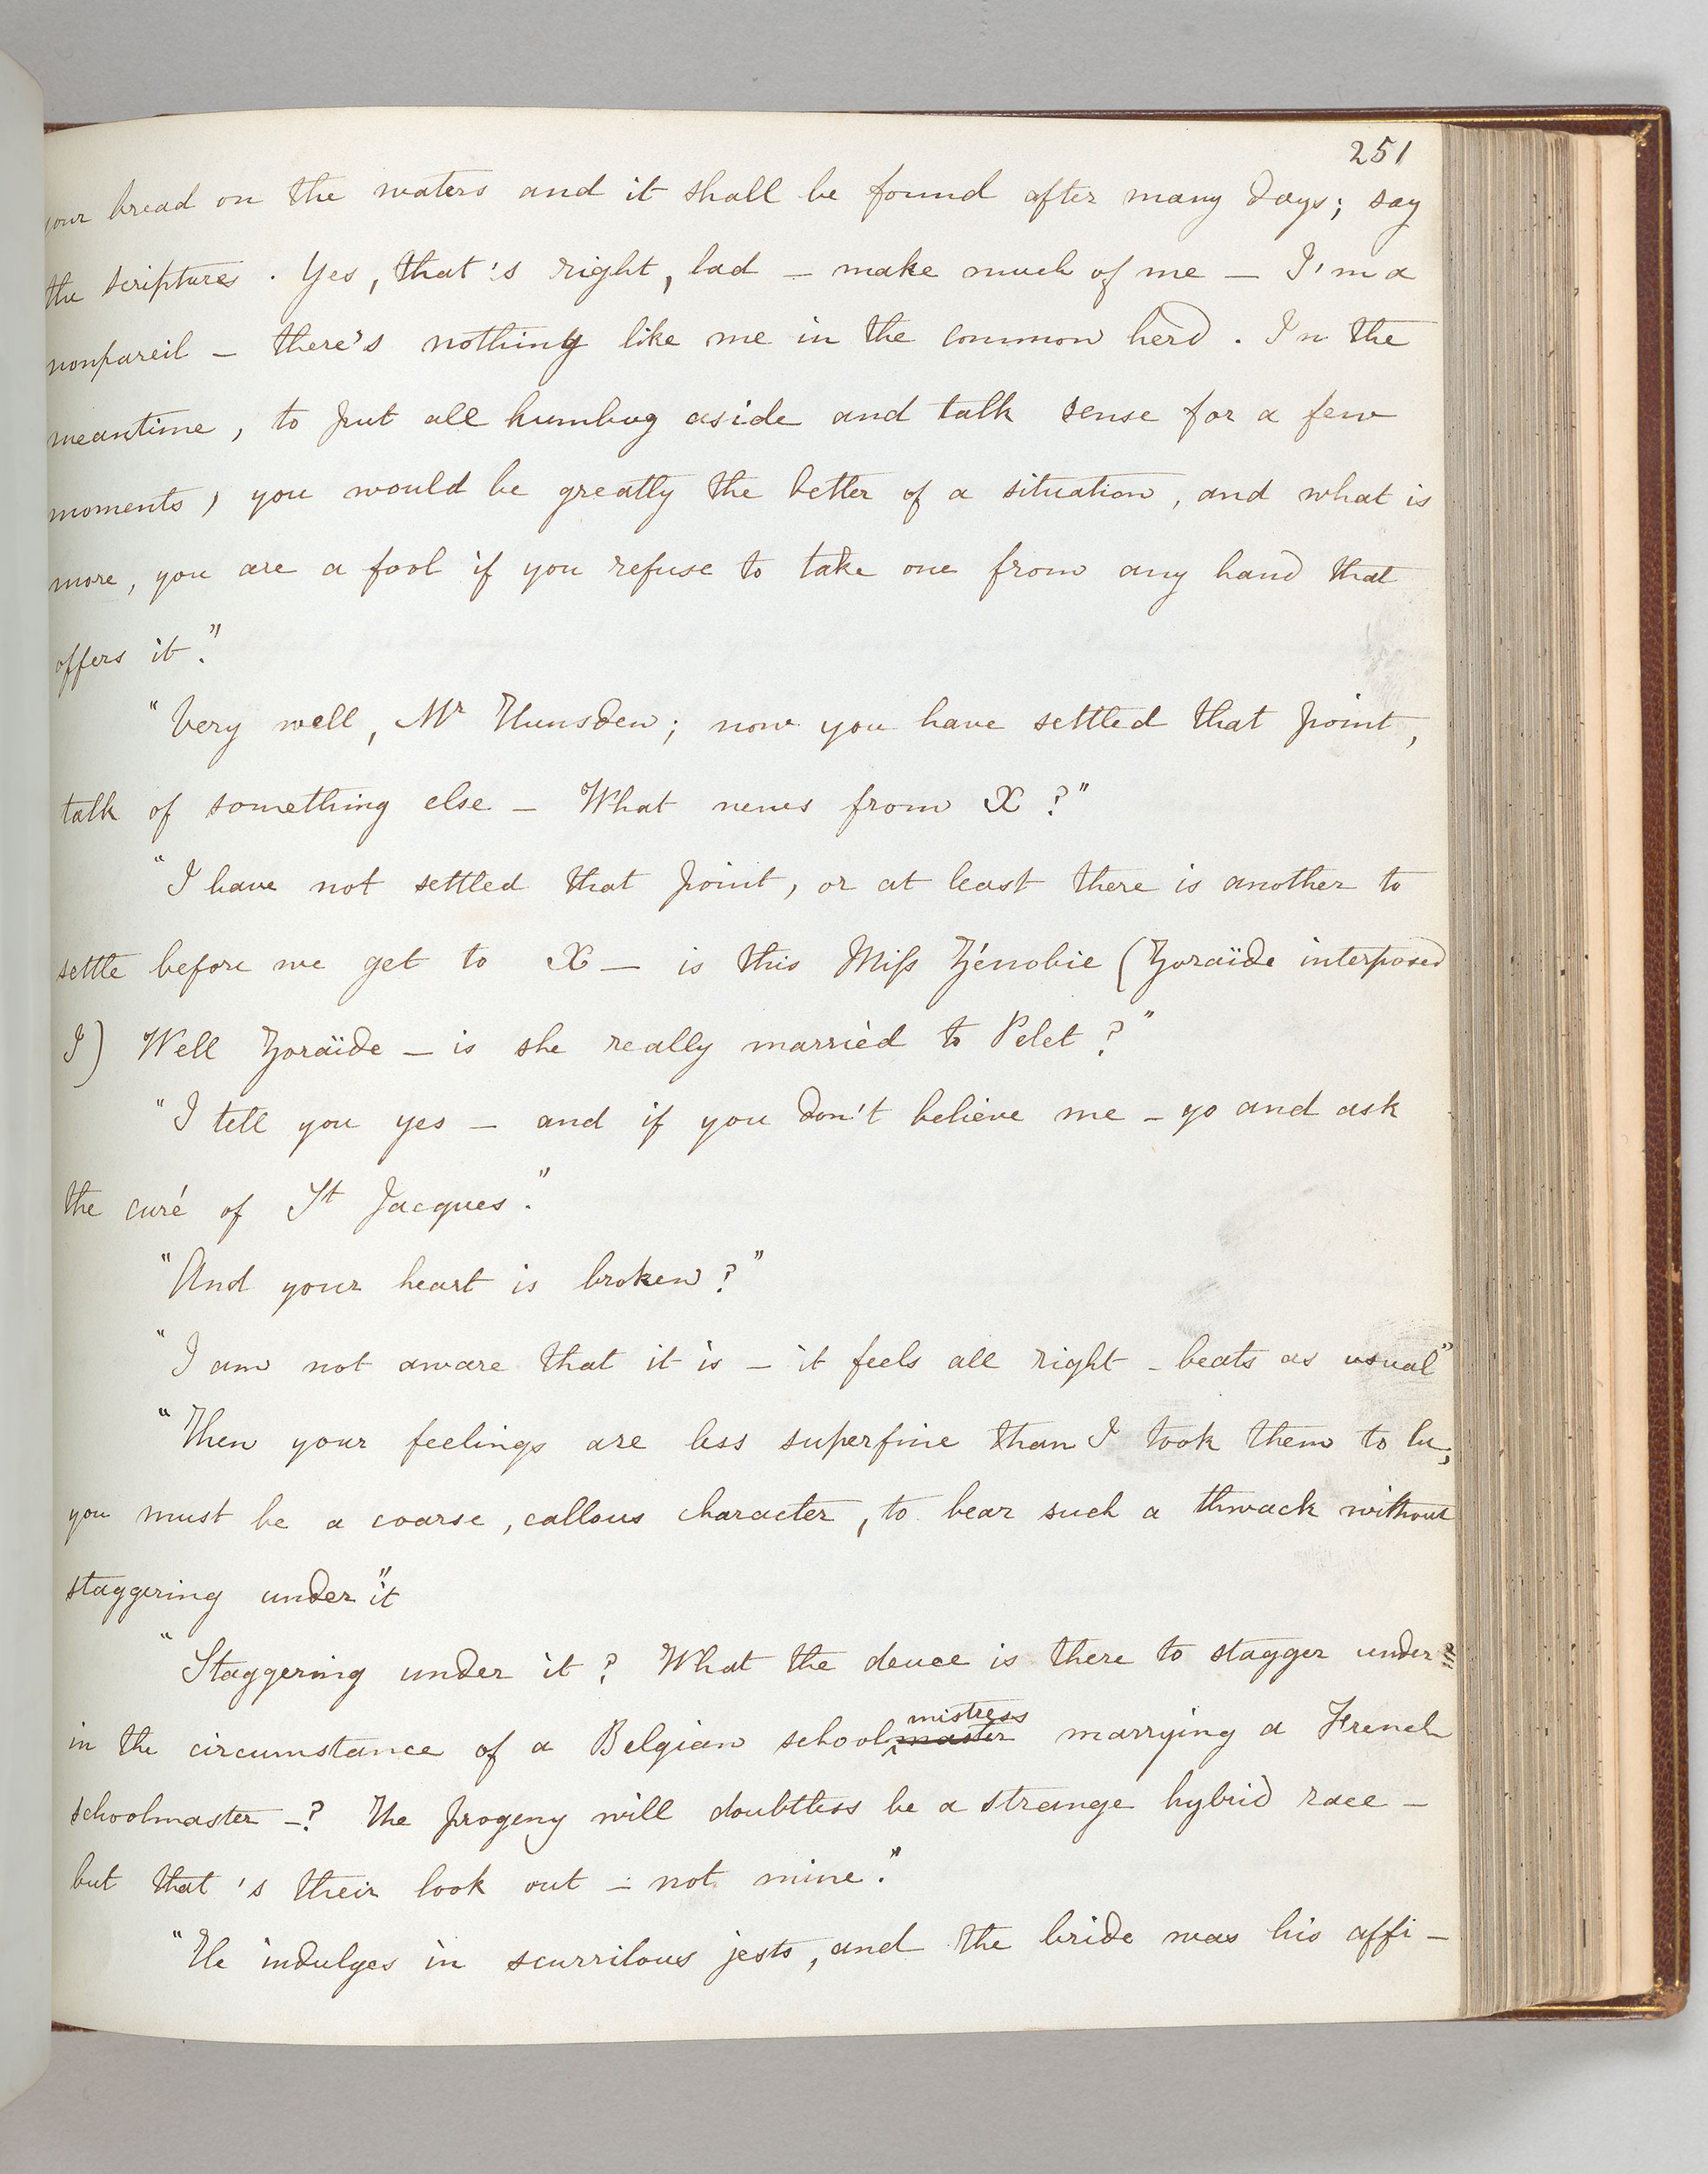 251
your bread on the waters and it shall be found after many days; say
the scriptures. Yes, that's right, lad — make much of me — I'm a
nonpareil — there's nothing like me in the common herd. In the
meantime, to put all humbug aside and talk sense for a few
moments, you would be greatly the better of a situation, and what is
more, you are a fool if you refuse to take one from any hand that
offers it."
"Very well, Mr Hunsden; now you have settled that point,
talk of something else — What news from X?"
"I have not settled that point, or at least there is another to
settle before we get to X — is this Miss Zénobie (Zoraïde interposed
I) Well Zoraïde — is she really married to Pelet?"
"I tell you yes — and if you don't believe me — go and ask
the curé of St Jacques."
"And your heart is broken?"
"I am not aware that it is — it feels all right — beats as usual"
"Then your feelings are less superfine than I took them to be;
you must be a coarse, callous character, to bear such a thwack without
staggering under it"
"Staggering under it? What the deuce is there to stagger under
in the circumstance of a Belgian schoolmaster mistress marrying a French
schoolmaster —? The progeny will doubtless be a strange hybrid race —
but that's their look out — not mine."
"He indulges in scurrilous jests, and the bride was his affi-